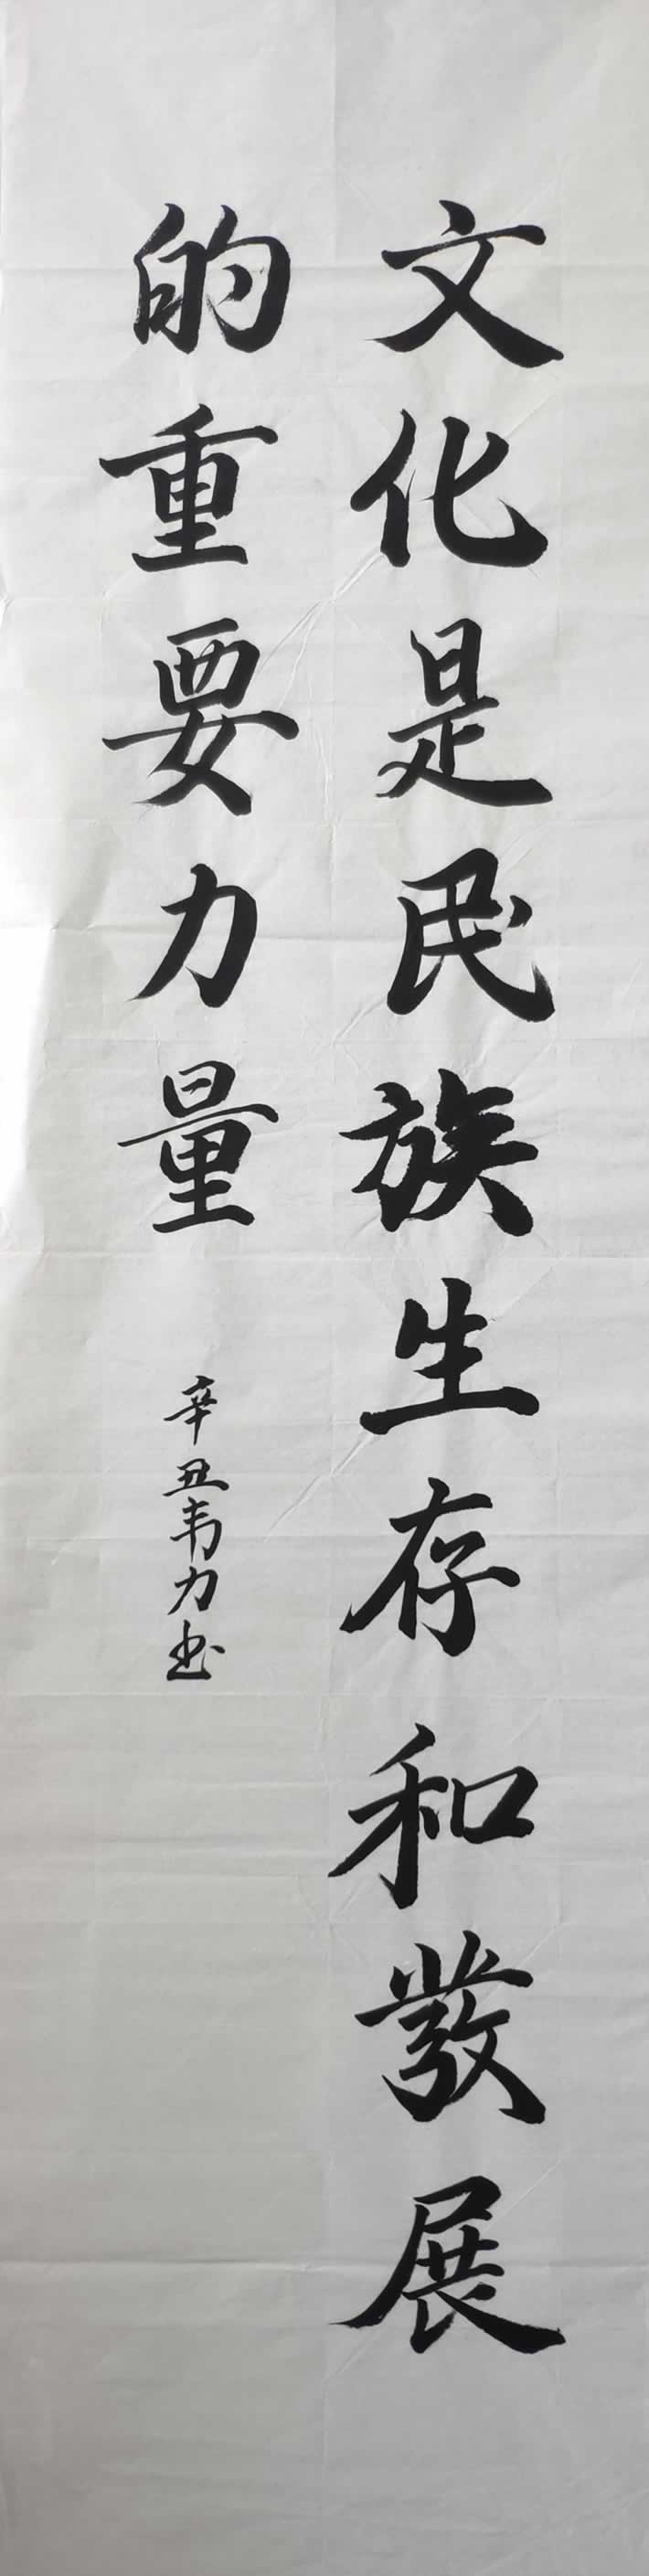 文化是民族生存和發展
的重要力量
辛丑韦力书